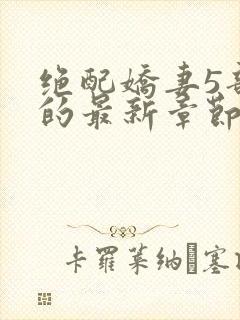 绝配娇妻5
的最新章節
卡羅萊纳塞